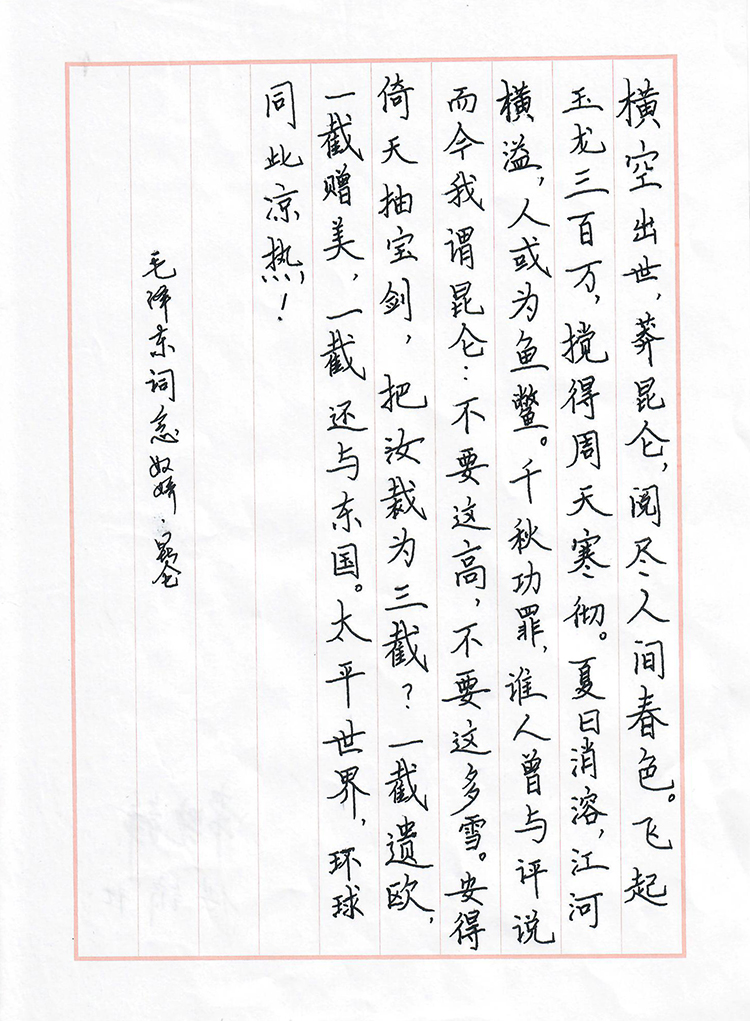 横空出世，莽昆仑，阅尽人间春色。飞起
玉龙三百万，搅得周天寒彻。夏日消溶，江河
横溢，人或为鱼鳖。千秋功罪，谁人曾与评说
而今我谓昆仑：不要这高，不要这多雪。安得
倚天抽宝剑，把汝裁为三截？一截遗欧，
一截赠美，一截还与东国。太平世界，环球
同此凉热！
毛泽东词念奴娇·昆仑